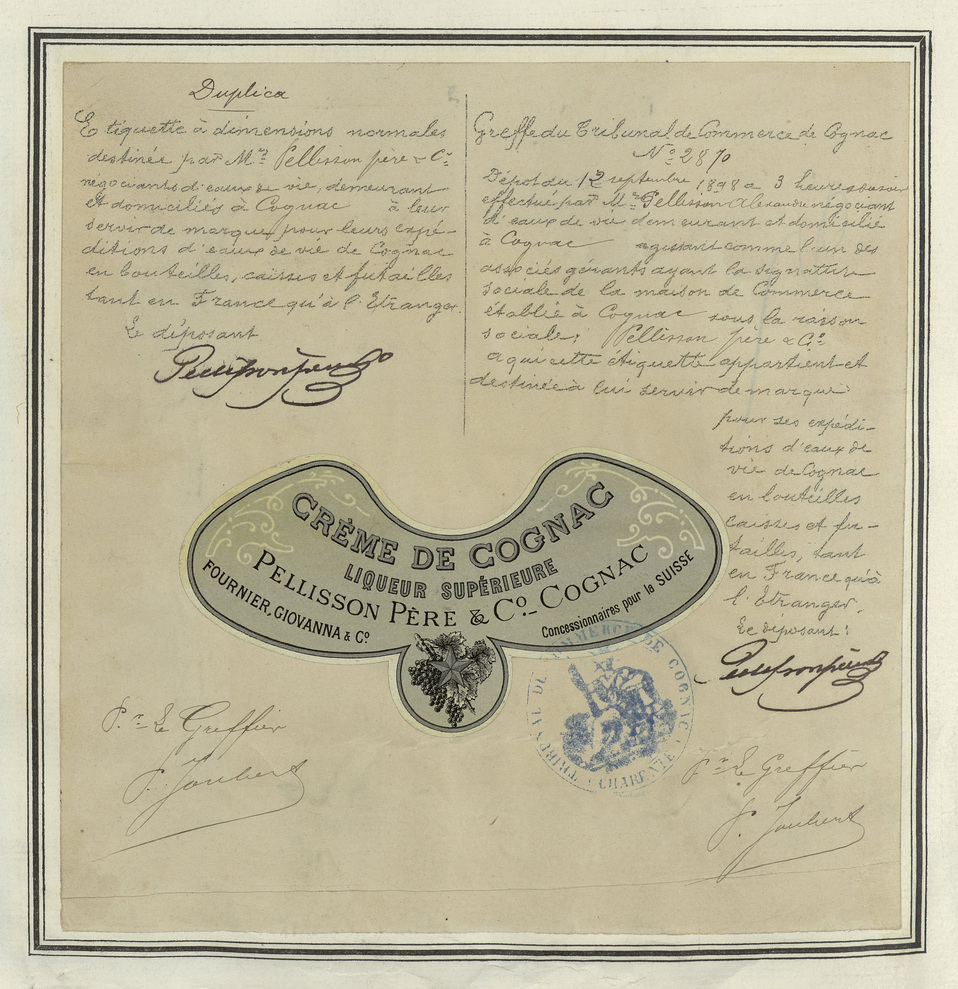 Duplica
Etiquette à dimensions normales
destinée par Mrs Pellisson père & Cie
négociants d'eaux de vie, demeurant
et domiciliés à Cognac à leur
servir de marque pour leurs expé-
ditions d'eaux de vie de Cognac
en bouteilles, caisses et futailles
tant en France qu'à l'Etranger.
Le déposant
Pellisson père & Co
Greffe du Tribunal de Commerce de Cognac
No 2870
Dépôt du 12 septembre 1898 a 3 heures du soir
effectué par Mr Pellisson Alexandre négociant
d'eaux de vie demeurant et domicilié
à Cognac agissant comme l'un des
associés gérants ayant la signature
sociale de la maison de Commerce
établie à Cognac sous la raison
sociale: Pellisson père & Co
a qui cette étiquette appartient et
destinée à lui servir de marque
pour ses expédi-
tions d'eaux de
vie de Cognac
en bouteilles
caisses et fu-
tailles, tant
en France qu'à
l'Etranger.
Le déposant:
Pellisson père & Co
CRÈME DE COGNAC
LIQUEUR SUPÉRIEURE
PELLISSON PÈRE & Co_COGNAC
FOURNIER, GIOVANNA & Co
Concessionnaires pour la SUISSE
TRIBUNAL DE COMMERCE DE COGNAC
(CHARENTE)
Pr Le Greffier
P. Joubert
Pr Le Greffier
P. Joubert